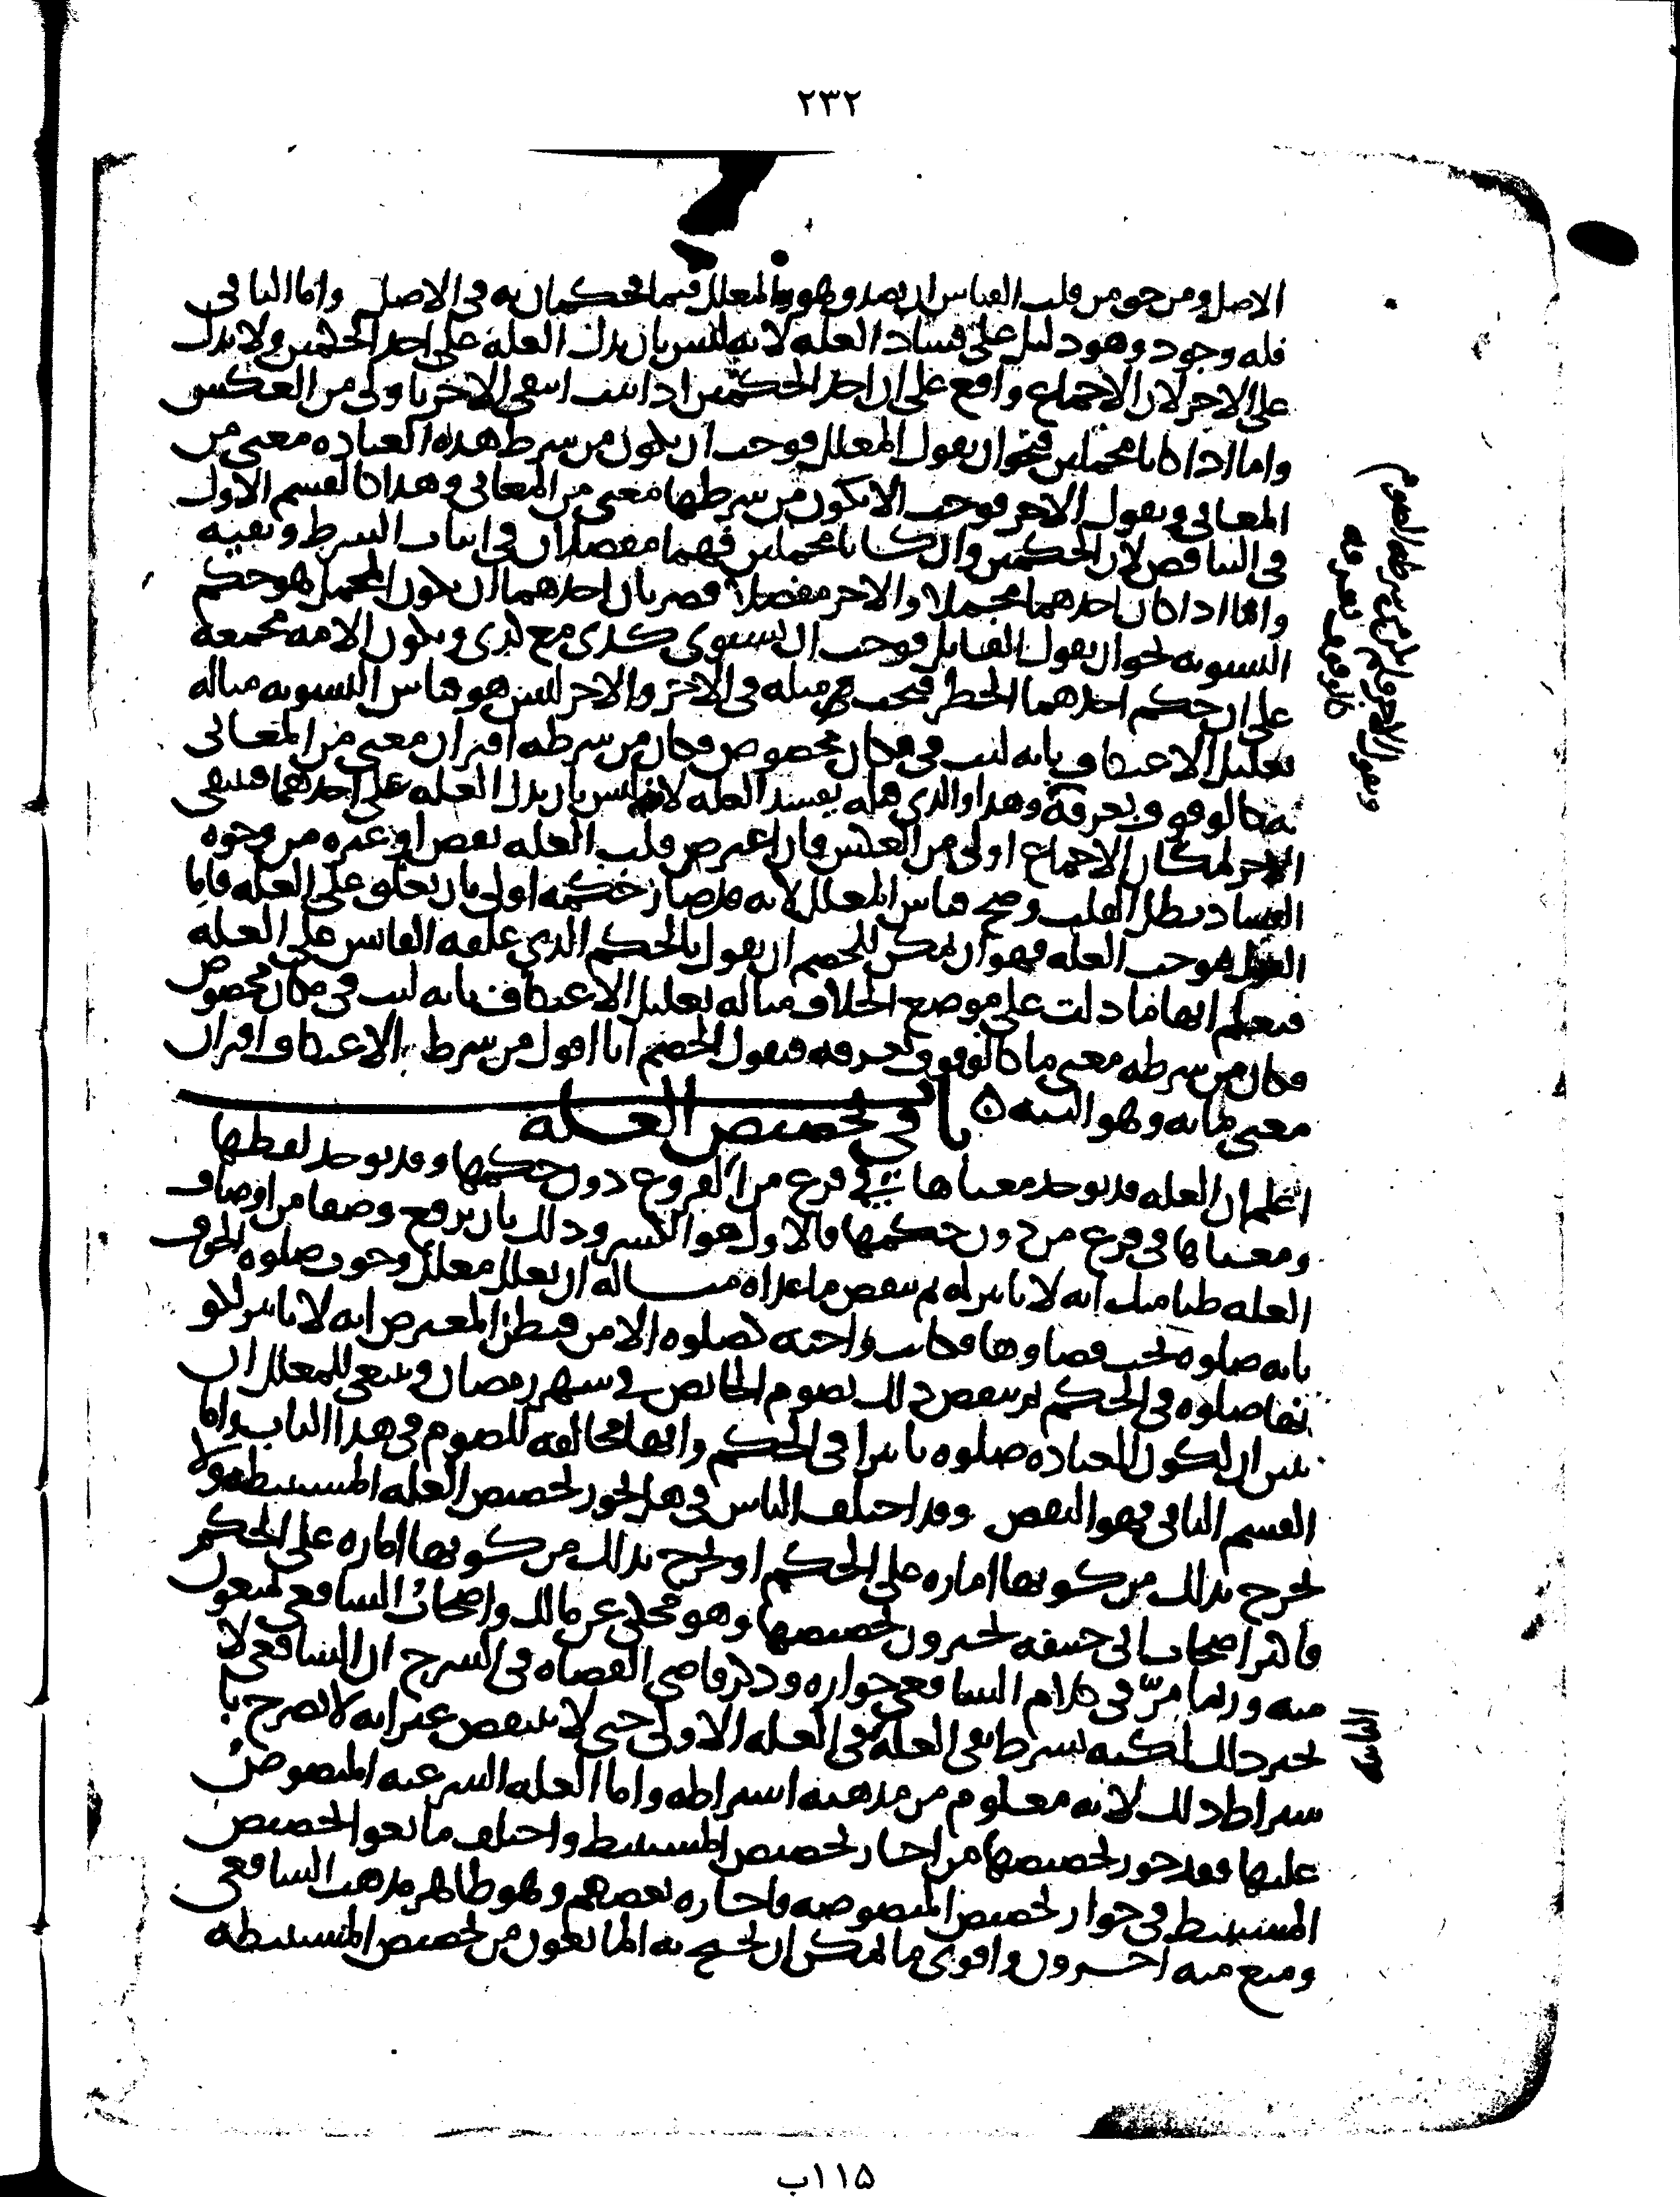 ٢٣٢
الاصل ومن حق من قلب القياس ان يصدق هو والمعلل فيما يحكمان به في الاصل واما الثاني
فله وجود وهو دليل على فساد العله لانه ليس بان يدل العله على احد الحكمين ولا يدل
على الاخر لان الاجماع واقع على ان احد الحكمين اذا ثبت انتفى الاخر باولى من العكس
واما اذا كانا مجملين فنحو ان يقول المعلل فوجب ان يكون من شرط هذه العباده معنى من
المعاني ويقول الاخر فوجب الا يكون من شرطها معنى من المعاني وهذا كالقسم الاول
في التناقض لان الحكمين وان كانا مجملين فهما مفصلان في اثبات الشرط ونفيه
واما اذا كان احدهما مجملا والاخر مفصلا فضربان احدهما ان يكون المجمل هو حكم
التسويه نحو ان يقول القائل فوجب ان يستوي كذى مع كذى ويكون الامه مجمعه
على ان حكم احدهما الحظر فيجب مثله في الاخر والاخر ليس هو قياس التسويه مثاله
تعليل الاعتكاف بانه لبث في مكان مخصوص فكان من شرطه اقتران معنى من المعاني
به كالوقوف بعرفة وهذا والذي قبله يفسد العله لانه ليس بان يدل العله على احدهما فينتفي
الاخر لمكان الاجماع اولى من العكس فان اعترض قلب العله بنقض او غيره من وجوه
الفساد بطل القلب وصح قياس المعلل لانه قد صار حكمه اولى بان يعلق على العله فاما
القول بموجب العله فهو ان يمكن للخصم ان يقول بالحكم الذي علقه القائس على العله
فيعلم انها ما دلت على موضع الخلاف مثاله تعليل الاعتكاف بانه لبث في مكان مخصوص
فكان من شرطه معنى ما كالوقوف بعرفه فيقول الخصم انا اقول من شرط الاعتكاف اقتران
معنى ما به وهو النيه ه باب في تخصيص العله
اعلم ان العله قد يوجد معناها في فرع من الفروع دون حكمها وقد يوجد لفظها
ومعناها في فرع من دون حكمها فالاول هو الكسر وذلك بان يرفع وصفا من اوصاف
العله ظنا منه انه لا تاثير له ثم ينقض ما عداه مثاله ان يعلل معلل وجوب صلوه الخوف
بانه صلوه يجب قضاوها فكانت واجبه كصلوه الامن فيظن المعترض انه لا تاثير لكو
نها صلوه في الحكم ثم ينقض ذلك بصوم الحائض في شهر رمضان وينبغي للمعلل ان
يبين ان لكون العباده صلوه تاثيرا في الحكم وانها مخالفه للصوم في هذا الباب واما
القسم الثاني فهو النقض وقد اختلف الناس في هل يجوز تخصيص العله المستنبطه ولا
يخرج بذلك من كونها اماره على الحكم او يخرج بذلك من كونها اماره على الحكم
فاكثر اصحاب ابي حنيفه يجيزون تخصيصها وهو محكي عن مالك واصحاب الشافعي يمنعون
منه وربما مرّ في كلام الشافعي جوازه وذكر قاضي القضاه في الشرح ان الشافعي لا
يجيز ذلك لكنه يشرط نفي العله في العله الاولى حتى لا ينتقض غير انه لا يصرح با
شتراط ذلك لانه معلوم من مذهبه اشتراطه واما العله الشرعيه المنصوص
عليها فقد جوز تخصيصها من اجاز تخصيص المستنبط واختلف مانعوا تخصيص
المستنبط في جواز تخصيص المنصوصه فاجازه بعضهم وهو ظاهر مذهب الشافعي
ومنع منه اخرون واقوى ما يمكن ان يحتج به المانعون من تخصيص المستنبطه
ويقول الاخر فلم يكن من شرطه الصوم
كالوقوف بعرفه
١١٥ب